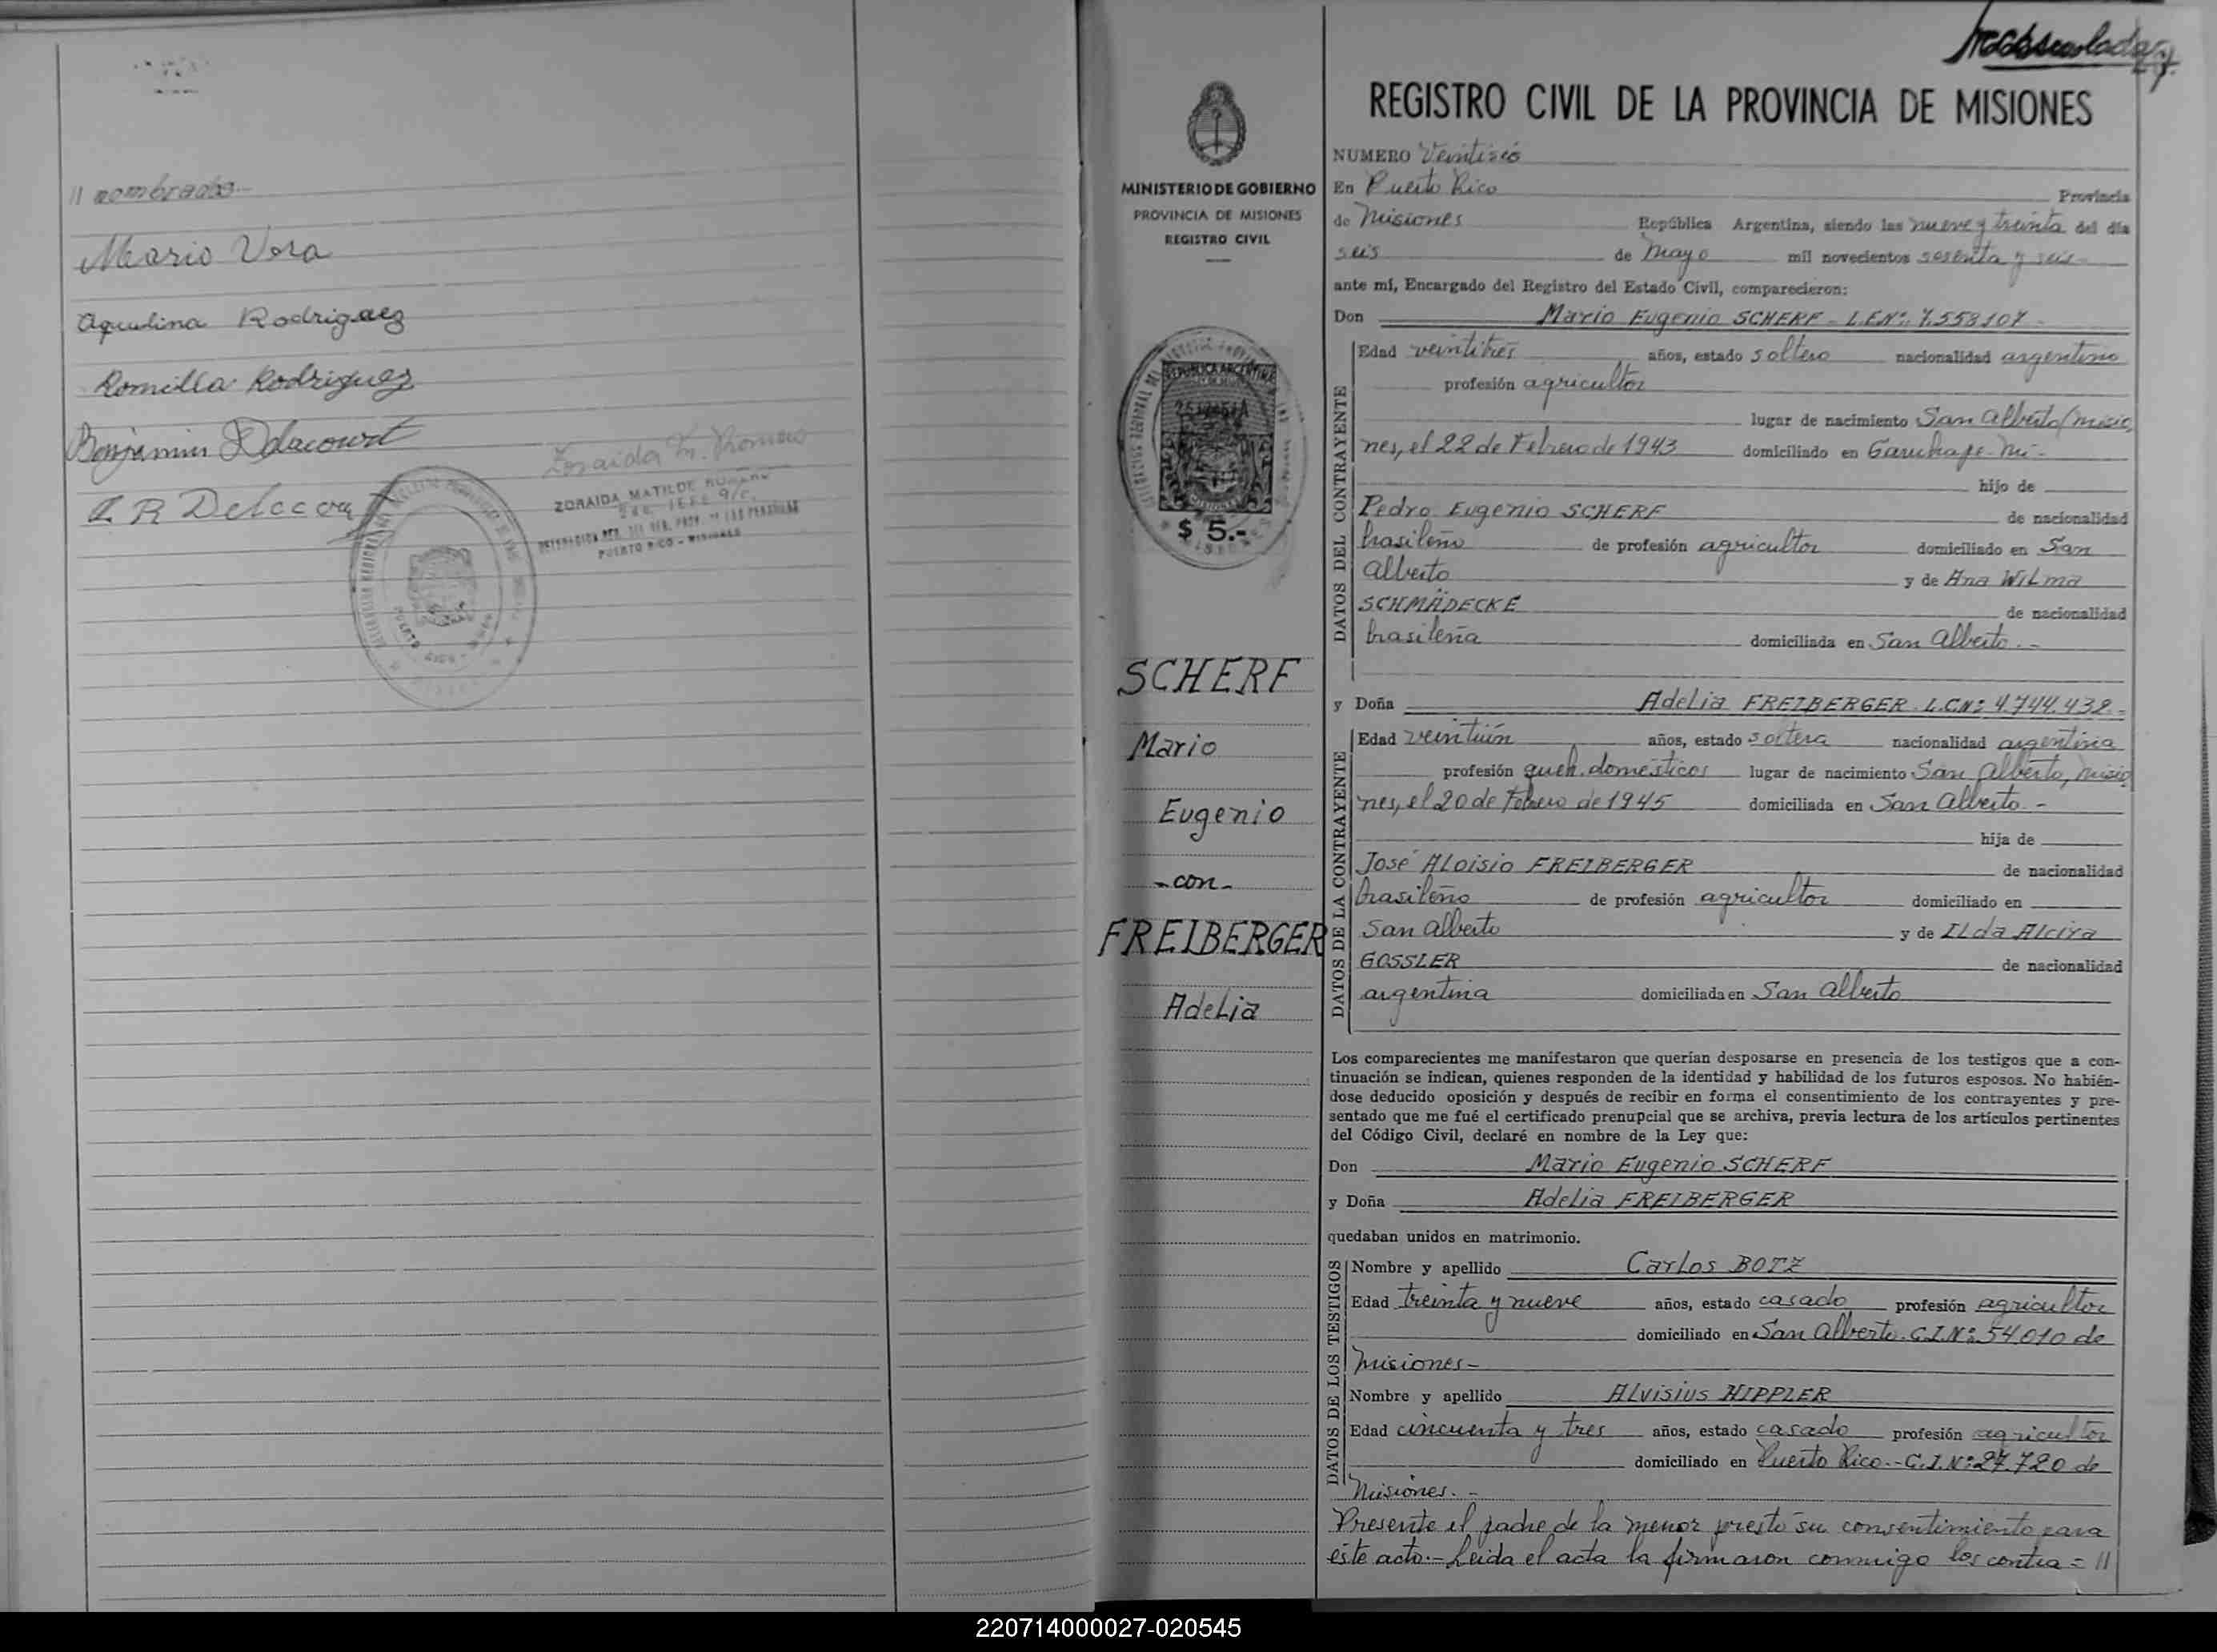 // nombrados
Mario Vera
Aquilina Rodriguez
Romilla Rodriguez
Benjamin Delacourt
ZORAIDA MATILDE
PUERTO RICO - MISIONES
MINISTERIO DE GOBIERNO
PROVINCIA DE MISIONES
REGISTRO CIVIL
REPUBLICA ARGENTINA
$ 5.-
SCHERF
Mario
Eugenio
-con-
FREIBERGER
Adelia
REGISTRO CIVIL DE LA PROVINCIA DE MISIONES
NUMERO
En Puerto Rico Provincia
de Misiones República Argentina, siendo las nueve y treinta del día
seis de Mayo mil novecientos sesenta y seis
ante mí, Encargado del Registro del Estado Civil, comparecieron:
Don Mario Eugenio SCHERF - L.E.Nº: 7.558.107 -
DATOS DEL CONTRAYENTE
Edad veintitres años, estado soltero nacionalidad argentino
profesión agricultor
lugar de nacimiento San Alberto (misio
nes, el 22 de Febrero de 1943 domiciliado en Garuhape - Mi -
hijo de
Pedro Eugenio SCHERF de nacionalidad
brasileño de profesión agricultor domiciliado en San
Alberto y de Ana Wilma
SCHMÄDECKE de nacionalidad
brasileña domiciliada en San Alberto. -
y Doña Adelia FREIBERGER - L.C.Nº: 4.744.432. -
DATOS DE LA CONTRAYENTE
Edad veintiún años, estado soltera nacionalidad argentina
profesión queh. domésticos lugar de nacimiento San Alberto, misio
nes, el 20 de Febrero de 1945 domiciliada en San Alberto -
hija de
José Aloisio FREIBERGER de nacionalidad
brasileño de profesión agricultor domiciliado en
San Alberto y de Ilda Alcira
GOSSLER de nacionalidad
argentina domiciliada en San Alberto
Los comparecientes me manifestaron que querían desposarse en presencia de los testigos que a con-
tinuación se indican, quienes responden de la identidad y habilidad de los futuros esposos. No habién-
dose deducido oposición y después de recibir en forma el consentimiento de los contrayentes y pre-
sentado que me fué el certificado prenupcial que se archiva, previa lectura de los artículos pertinentes
del Código Civil, declaré en nombre de la Ley que:
Don Mario Eugenio SCHERF
y Doña Adelia FREIBERGER
quedaban unidos en matrimonio.
DATOS DE LOS TESTIGOS
Nombre y apellido Carlos BOTZ
Edad treinta y nueve años, estado casado profesión agricultor
domiciliado en San Alberto. C.I.Nº: 54.010 de
Misiones -
Nombre y apellido Alvisius HIPPLER
Edad cincuenta y tres años, estado casado profesión agricultor
domiciliado en Puerto Rico. - C.I.Nº: 27.720 de
Misiones. -
Presente el padre de la menor prestó su consentimiento para
este acto. - Leida el acta la firmaron conmigo los contra = //
220714000027-020545